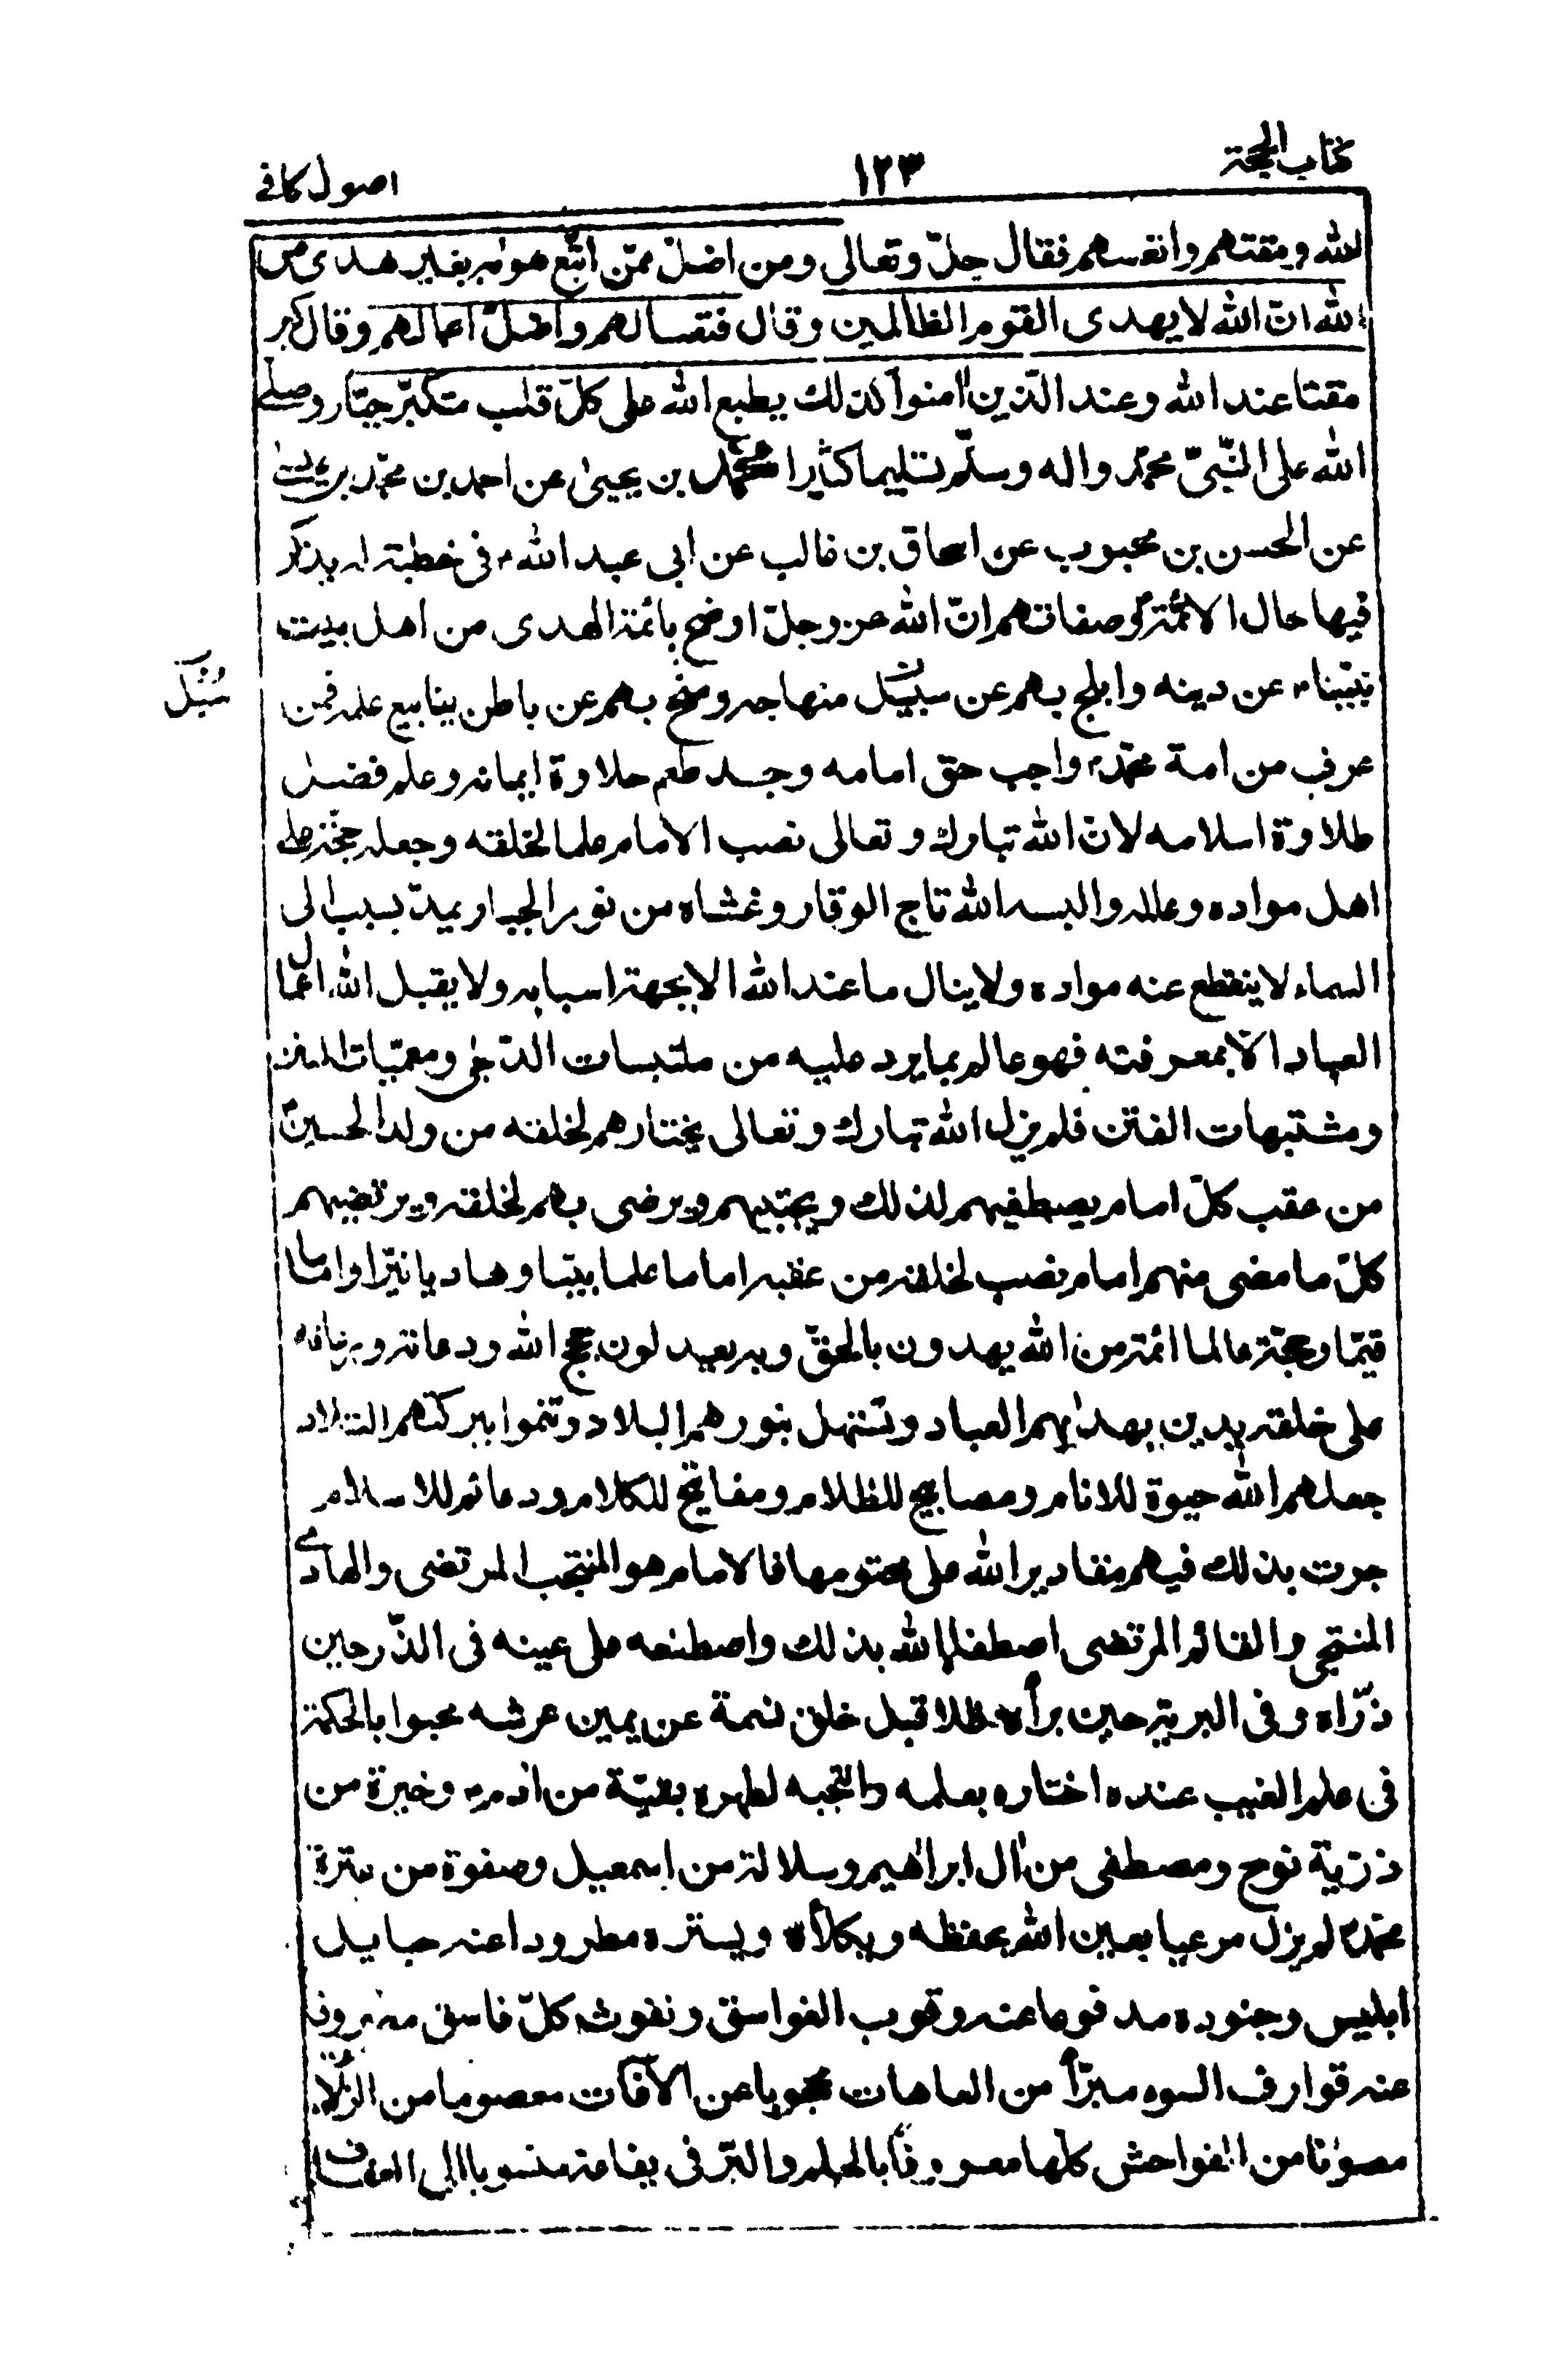 كتاب الحجة ١٢٣ اصول كافى
الله ومقتهم واتعسهم فقال جلّ وتعالى ومن اضلّ ممّن اتّبع هواه بغير هدى من
الله انّ الله لا يهدى القوم الظالمين وقال فتعسا لهم واضلّ اعمالهم وقال كبر
مقتا عند الله وعند الّذين امنوا كذلك يطبع الله على كلّ قلب متكبّر جبّار وصلى
الله على النّبىّ محمّد واله وسلّم تسليما كثيرا محمّد بن يحيىٰ عن احمد بن محمّد بن عيسى
عن الحسن بن محبوب عن اسحاق بن غالب عن ابى عبد الله ع فى خطبة له يذكر
فيها حال الائمّة ع وصفاتهم انّ الله عز وجلّ اوضح بائمّة الهدى من اهل بيت
نبيّنا ص عن دينه وابلج بهم عن سبيل منهاجه ومنح بهم عن باطن ينابيع علمه فمن
سُبُل
عرف من امة محمّد ص واجب حق امامه وجد طعم حلاوة ايمانه وعلم فضل
طلاوة اسلامه لانّ الله تبارك وتعالى نصب الامام علما لخلقه وجعله حجّة على
اهل مواده وعالمه والبسه الله تاج الوقار وغشاه من نور الجبار يمدّ بسبب الى
السماء لا ينقطع عنه مواده ولا ينال ما عند الله الا بجهة اسبابه ولا يقبل الله اعمال
العباد الّا بمعرفته فهو عالم بما يرد عليه من ملتبسات الدّجٰى ومعمّيات السنن
ومشتبهات الفتن فلم يزل الله تبارك وتعالى يختارهم لخلقه من ولد الحسين ع
من عقب كلّ امام يصطفيهم لذلك ويجتبيهم ويرضى بهم لخلقه ويرتضيهم
كلّ ما مضى منهم امام نصب لخلقه من عقبه اماما علما بيّنا وهاديا نيّرا واماما
قيّما وحجّة عالما ائمّة من الله يهدون بالحقّ وبه يعدلون حجج الله ودعاته ورعاته
على خلقه يدين بهداهم العباد وتستهل بنورهم البلاد وتنموا ببركتهم التلاد
جعلهم الله حيوة للانام ومصابيح للظلام ومفاتيح للكلام ودعائم للاسلام
جرت بذلك فيهم مقادير الله على محتومها فالامام هو المنتجب المرتضى والهادى
المنتجى والقائم المرتضى اصطفاه الله بذلك واصطنعه على عينه فى الذّر حين
ذرّاه وفى البرية حين برأه ظلا قبل خلق نسمة عن يمين عرشه محبوا بالحكمة
فى علم الغيب عنده اختاره بعلمه وانتجبه لطهره بقيّة من ادم ع وخيرة من
ذرّية نوح ومصطفى من اٰل ابراهيم وسلالة من اسمعيل وصفوة من عترة
محمّد ص لم يزل مرعيا بعين الله يحفظه ويكلأه ويستره مطرودا عنه حبايل
ابليس وجنوده مدفوعا عنه وقوب الغواسق ونفوث كلّ فاسق مصروفا
عنه قوارف السوء مبرّأ من العاهات محجوبا عن الآفات معصوما من الزلّات
مصونا من الفواحش كلّها معروفا بالحلم والبّر فى يفاعه منسوبا الى العفاف